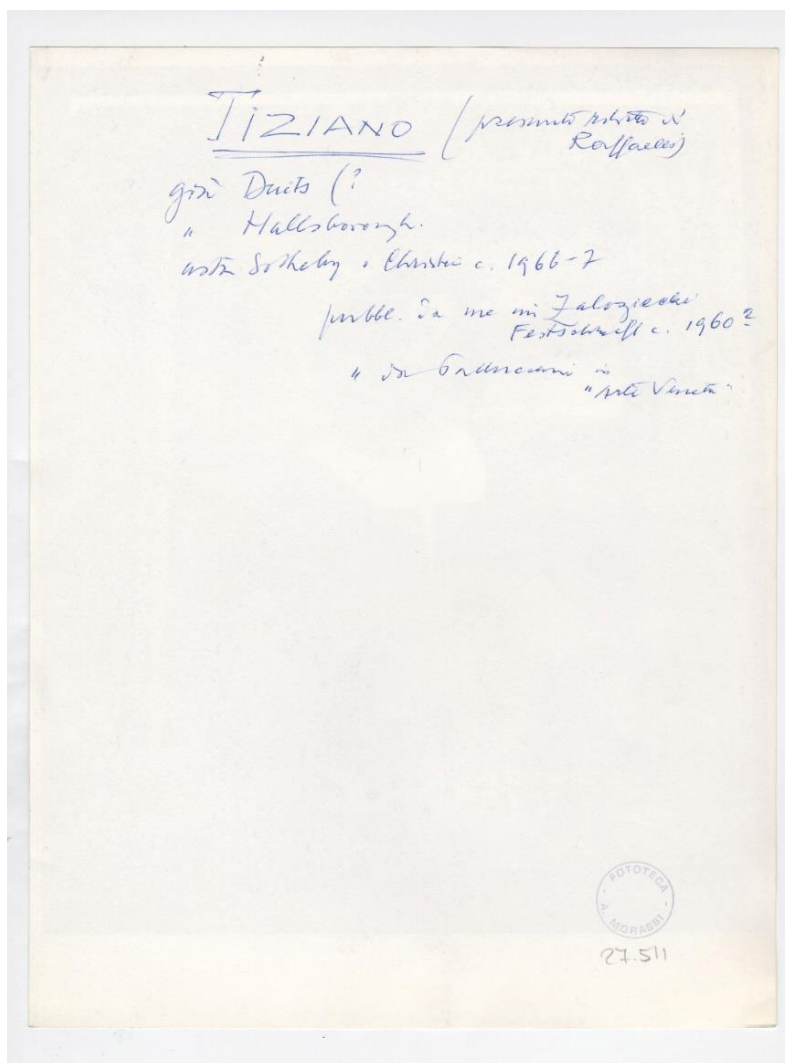 TIZIANO (presunto ritratto di
Raffaello)
già Duits (?
" Hallsborough.
asta Sotheby o Christie c. 1966-7
pubbl. da me in Zaloziecki
Festschrift c. 1960?
" da in
"Arte Veneta"
FOTOTECA
A. MORASSI
27.511